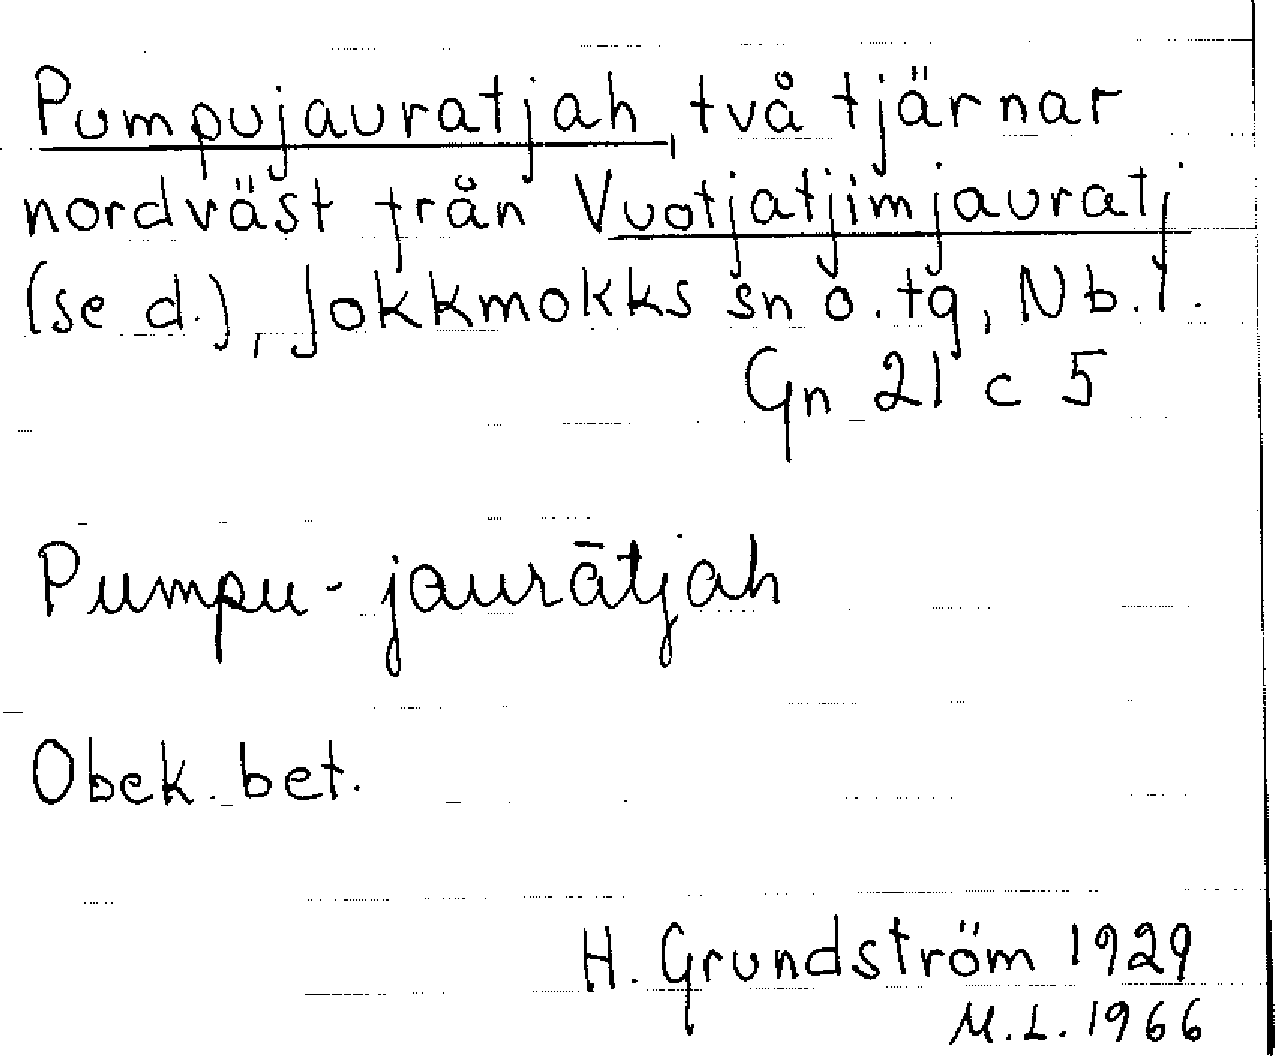 Pumpujauratjah, två tjärnar
nordväst från Vuotjatjimjauratj
(se d.), Jokkmokks sn o. tg, Nb. l.
Gn 21 c 5
Pumpu-jaurātjah
Obek. bet.
H. Grundström 1929
M.L. 1966